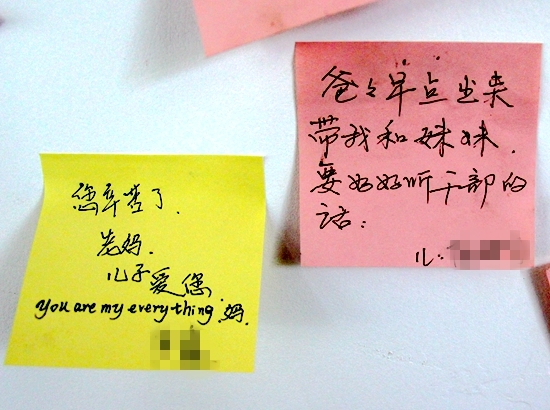 您辛苦了.
老妈.
儿子爱您
you are my everything 妈.
爸々早点出来
带我和妹妹.
要好好听干部的
话:
儿: